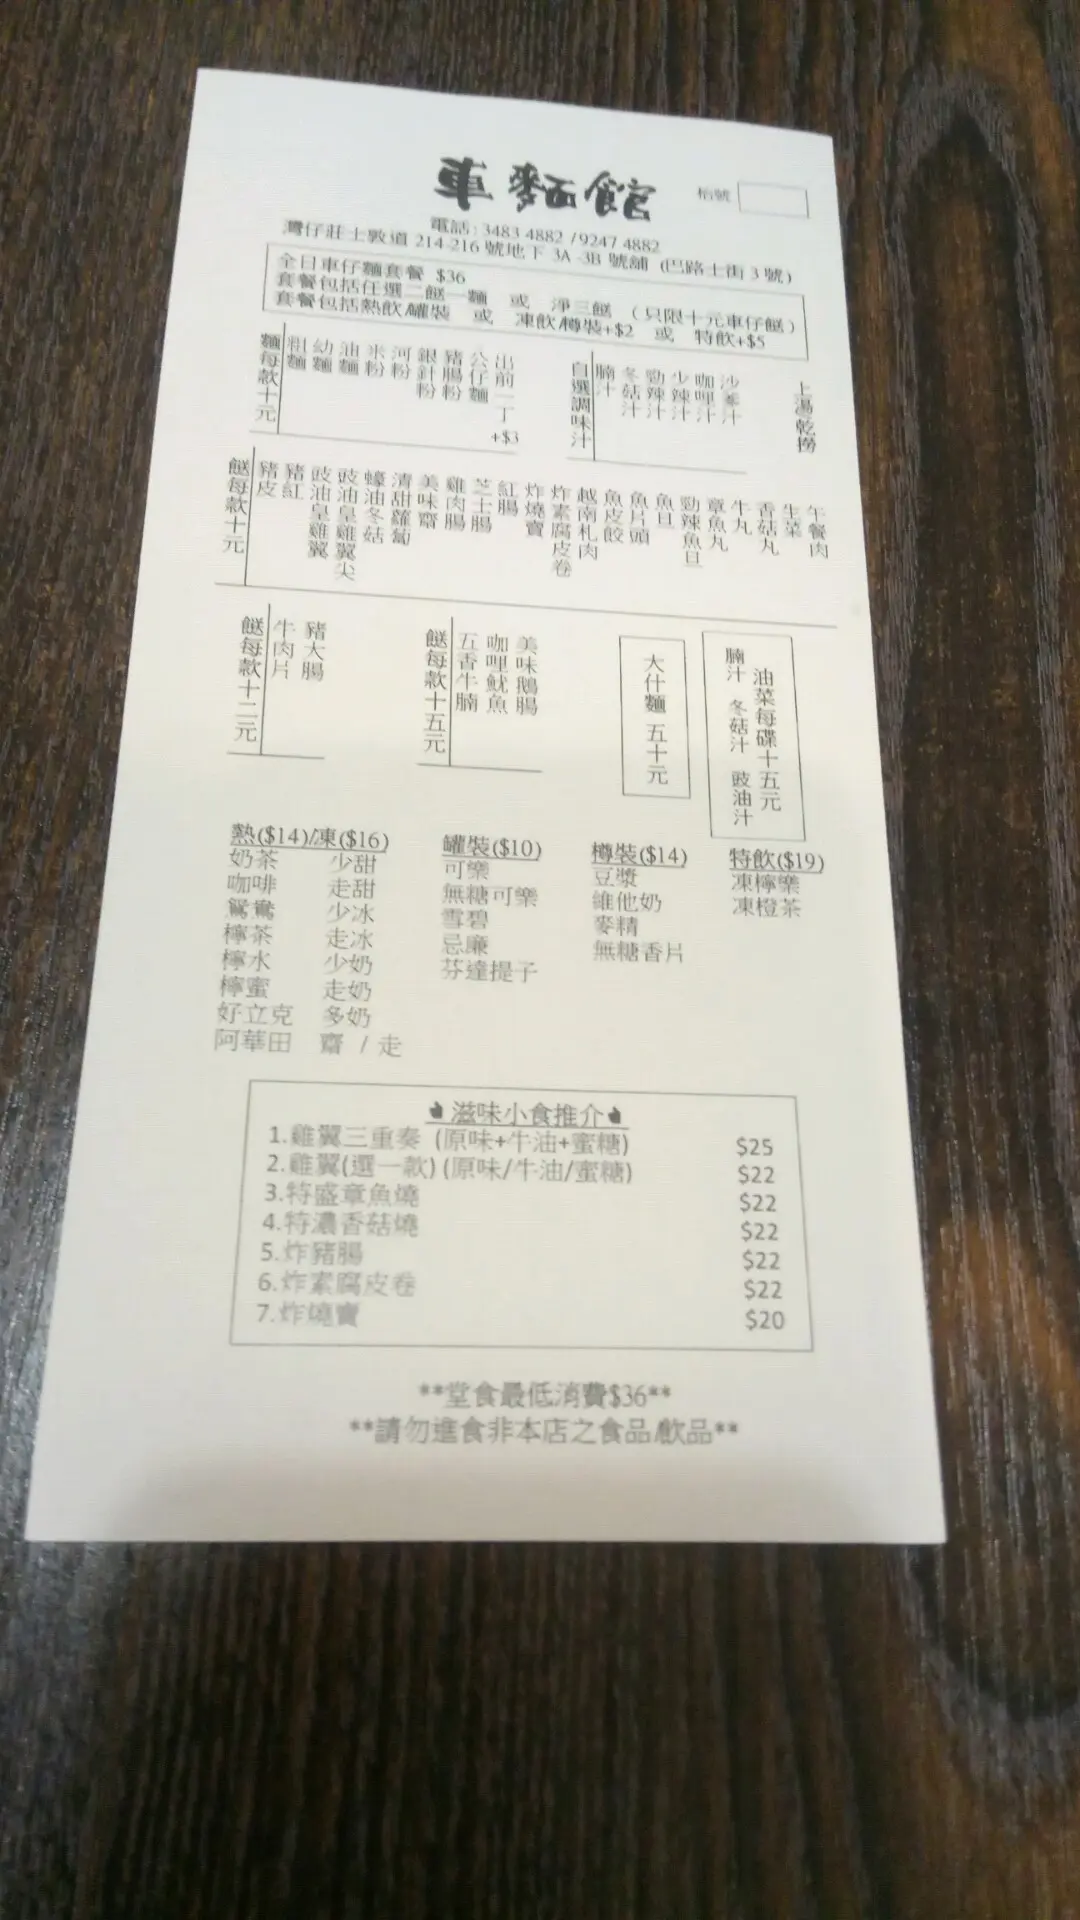 車麵館
枱號
電話: 3483 4882 / 9247 4882
灣仔莊士敦道 214-216 號地下 3A -3B 號舖 (巴路士街 3 號)
全日車仔麵套餐 $36
套餐包括任選二餸一麵 或 淨三餸 (只限十元車仔餸)
套餐包括熱飲/罐裝 或 凍飲/樽裝+$2 或 特飲+$5
麵每款十元
粗麵
幼麵
油麵
米粉
河粉
銀針粉
豬腸粉
公仔麵
出前一丁 +$3
自選調味汁
腩汁
冬菇汁
勁辣汁
少辣汁
咖哩汁
沙爹汁
上湯/乾撈
餸每款十元
豬皮
豬紅
豉油皇雞翼
豉油皇雞翼尖
蠔油冬菇
清甜蘿蔔
美味齋
雞肉腸
芝士腸
紅腸
炸燒賣
炸素腐皮卷
越南札肉
魚皮餃
魚片頭
魚旦
勁辣魚旦
章魚丸
牛丸
香菇丸
生菜
午餐肉
餸每款十二元
牛肉片
豬大腸
餸每款十五元
五香牛腩
咖哩魷魚
美味鵝腸
大什麵 五十元
油菜每碟十五元
腩汁 冬菇汁 豉油汁
熱($14)/凍($16)
奶茶 少甜
咖啡 走甜
鴛鴦 少冰
檸茶 走冰
檸水 少奶
檸蜜 走奶
好立克 多奶
阿華田 齋 / 走
罐裝($10)
可樂
無糖可樂
雪碧
忌廉
芬達提子
樽裝($14)
豆漿
維他奶
麥精
無糖香片
特飲($19)
凍檸樂
凍橙茶
滋味小食推介
1.雞翼三重奏 (原味+牛油+蜜糖) $25
2.雞翼(選一款) (原味/牛油/蜜糖) $22
3.特盛章魚燒 $22
4.特濃香菇燒 $22
5.炸豬腸 $22
6.炸素腐皮卷 $22
7.炸燒賣 $20
**堂食最低消費$36**
**請勿進食非本店之食品/飲品**